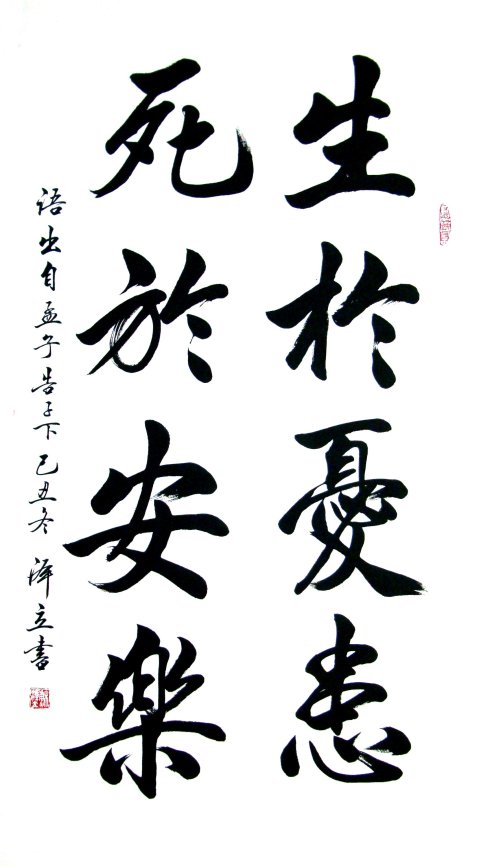 生於憂患
死於安樂
语出自孟子告子下己丑冬泽立书